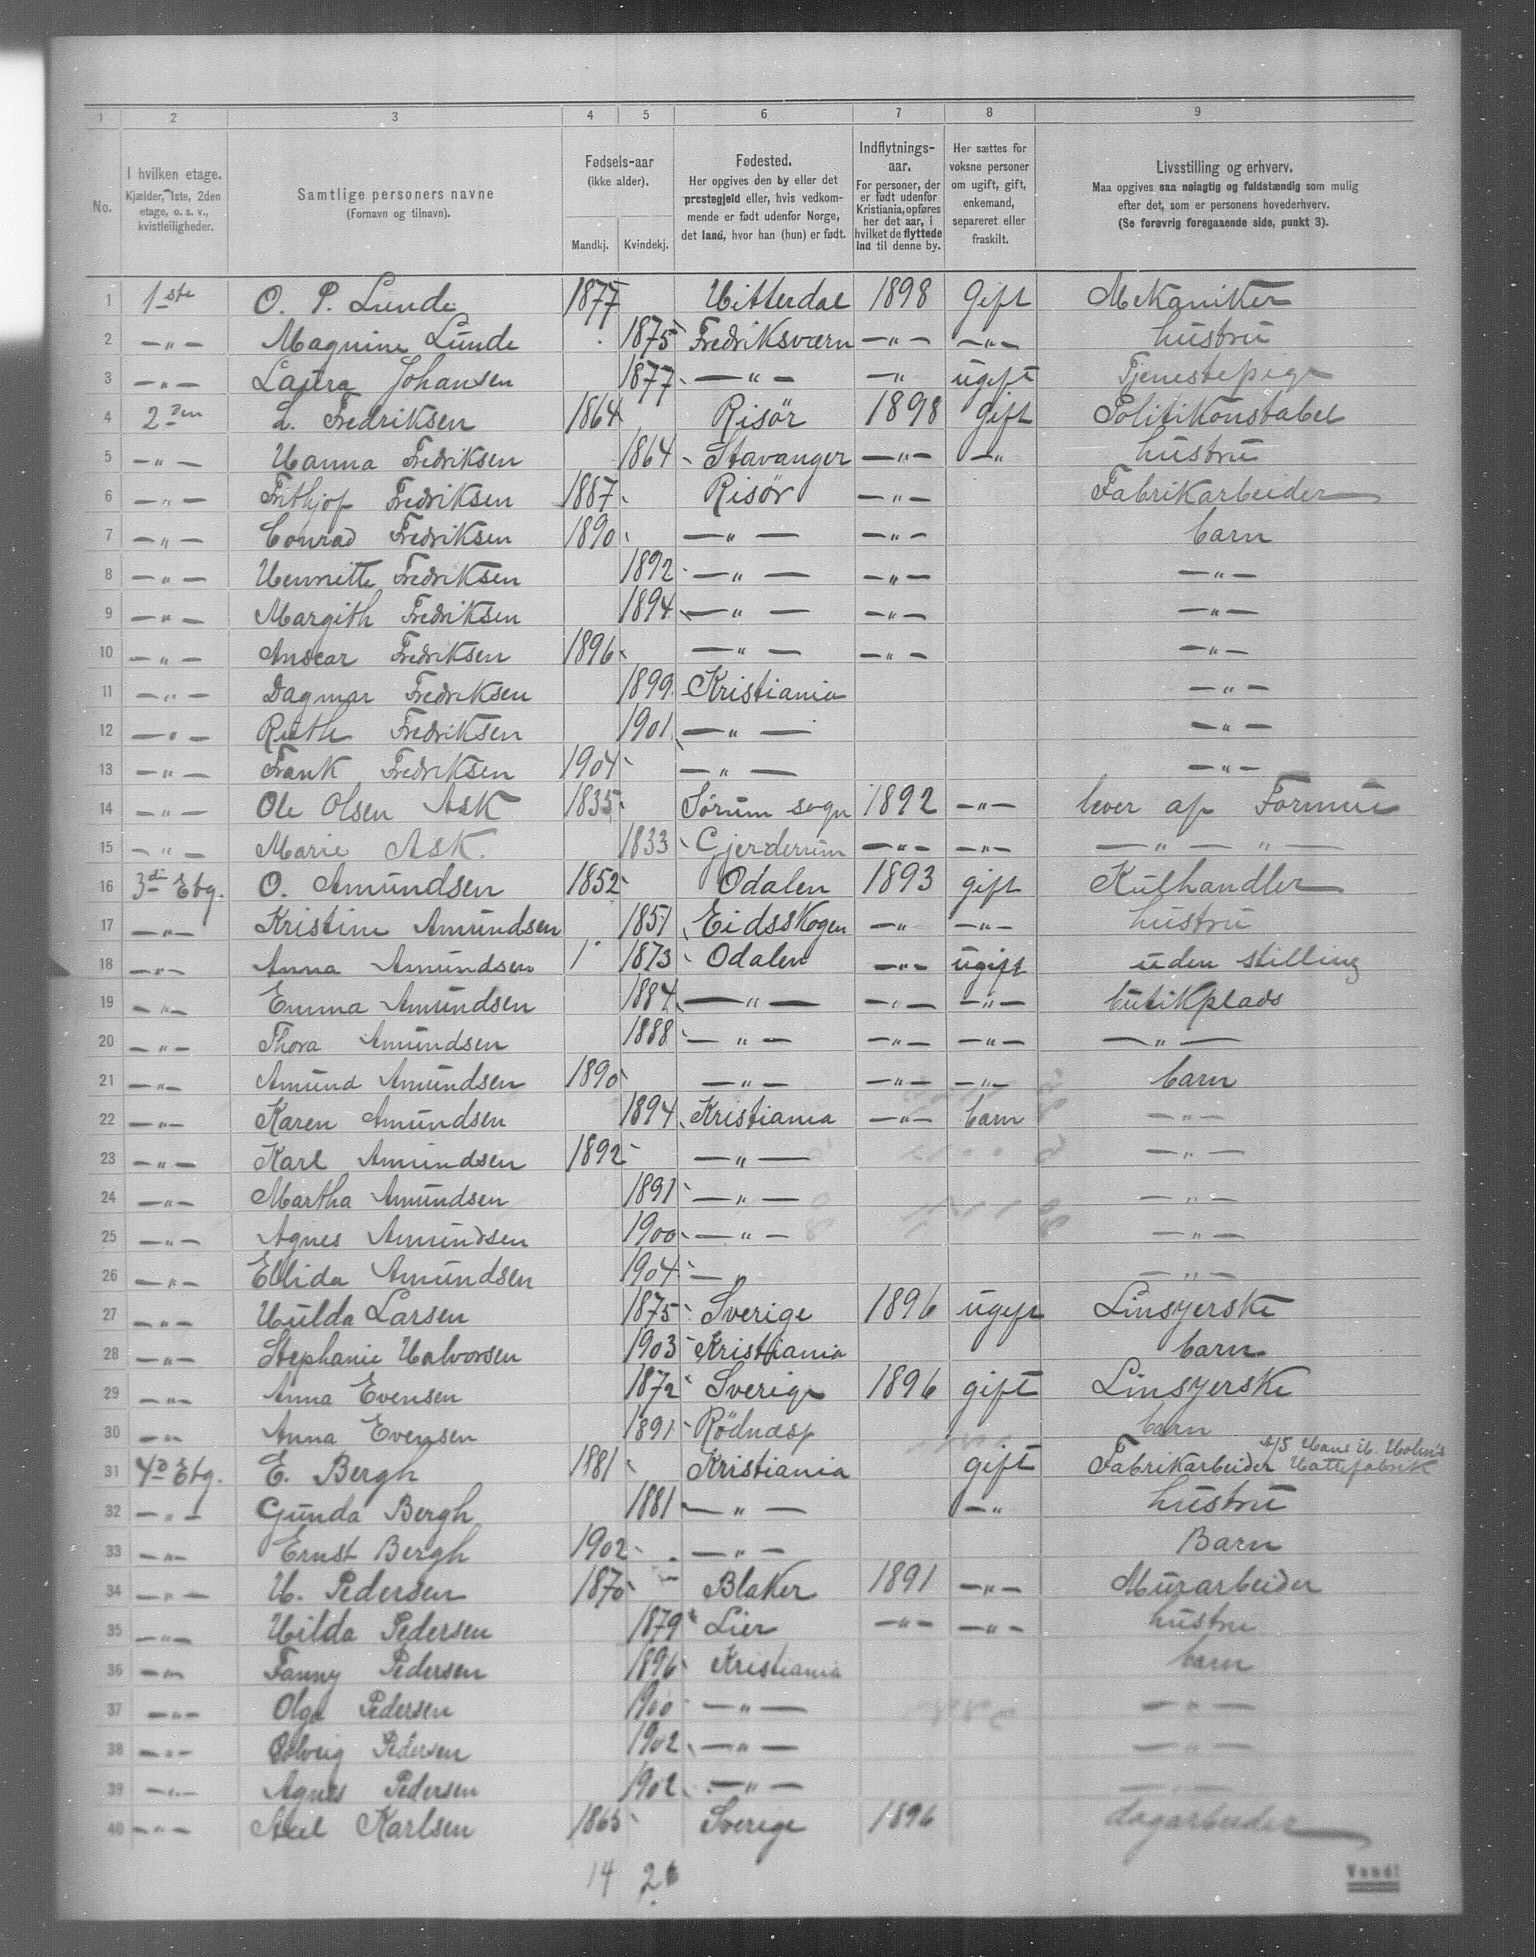 1 2 3 4 5 6 7 8 9
No. I hvilken etage. Kjælder, 1ste, 2den etage, o. s. v., kvistleiligheder. Samtlige personers navne (Fornavn og tilnavn). Fødsels-aar (ikke alder). Mandkj. Kvindekj. Fødested. Her opgives den by eller det prestegjeld eller, hvis vedkommende er født udenfor Norge, det land, hvor han (hun) er født. Indflytnings-aar. For personer, der er født udenfor Kristiania, opføres her det aar, i hvilket de flyttede ind til denne by. Her sættes for voksne personer om ugift, gift, enkemand, separeret eller fraskilt. Livsstilling og erhverv. Maa opgives saa nøiagtig og fuldstændig som mulig efter det, som er personens hovederhverv. (Se forøvrig foregaaende side, punkt 3).
1 1ste O. P. Lunde 1877 Hitterdal 1898 Gift Mekaniker
2 —"— Magnine Lunde 1875 Fredriksværn —"— —"— hustru
3 —"— Laura Johansen 1877 —"— —" ugift Tjenestepige
4 2den L. Fredriksen 1864 Risör 1898 Gift Politikonstabel
5 —"— Hanna Fredriksen 1864 Stavanger —"— —"— hustru
6 —"— Frithjof Fredriksen 1887 Risör —"— Fabrikarbeider
7 —"— Conrad Fredriksen 1890 —"— —"— barn
8 —"— Henriette Fredriksen 1892 —"— —"— —"—
9 —"— Margith Fredriksen 1894 —"— —"— —"—
10 —"— Anscar Fredriksen 1896 —"— —"— —"—
11 —"— Dagmar Fredriksen 1899 Kristiania —"—
12 —"— Ruth Fredriksen 1901 —"— —"—
13 —"— Frank Fredriksen 1904 —"— —"—
14 —"— Ole Olsen Ask 1835 Sörum sogn 1892 —"— lever af Formue
15 —"— Marie Ask. 1833 Gjerderum —"— —"— —"—"—
16 3die Etg. O. Amundsen 1852 Odalen 1893 gift Kulhandler
17 —"— Kristine Amundsen 1851 Eidsskogen —"— —"— hustru
18 —"— Anna Amundsen 1 1873 Odalen —"— ugift uden stilling
19 —"— Emma Amundsen 1884 —"— —"— —"— butikplads
20 —"— Thora Amundsen 1888 —"— —"— —"— —"—
21 —"— Amund Amundsen 1890 —"— —"— —"— barn
22 —"— Karen Amundsen 1894 Kristiania —"— barn —"—
23 —"— Karl Amundsen 1892 —"— —"—
24 —"— Martha Amundsen 1891 —"— —"—
25 —"— Agnes Amundsen 1900 —"— —"—
26 —"— Ellida Amundsen 1904 —" —"—
27 —"— Hulda Larsen 1875 Sverige 1896 ugift Linsyerske
28 —"— Stephanie Halvorsen 1903 Kristiania barn
29 —"— Anna Evensen 1872 Sverige 1896 gift Linsyerske
30 —"— Anna Evensen 1891 barn
31 4de Etg. E. Bergh 1881 Kristiania gift Fabrikarbeider A/S Hans H. Holm's Hattefabrik
32 —"— Gunda Bergh 1881 —"— —"— hustru
33 —"— Ernst Bergh 1902 —"— Barn
34 —"— H. Pedersen 1870 Blaker 1891 —"— Murarbeider
35 —"— Hilda Pedersen 1879 Lier —"— —"— hustru
36 —"— Fanny Pedersen 1896 Kristiania barn
37 —"— Olga Pedersen 1900 —"— —"—
38 —"— Solveig Pedersen 1902 —"— —"—
39 —"— Agnes Pedersen 1902 —"— —"—
40 —"— Axel Karlsen 1865 Sverige 1896 dagarbeider
14 26
Vend!